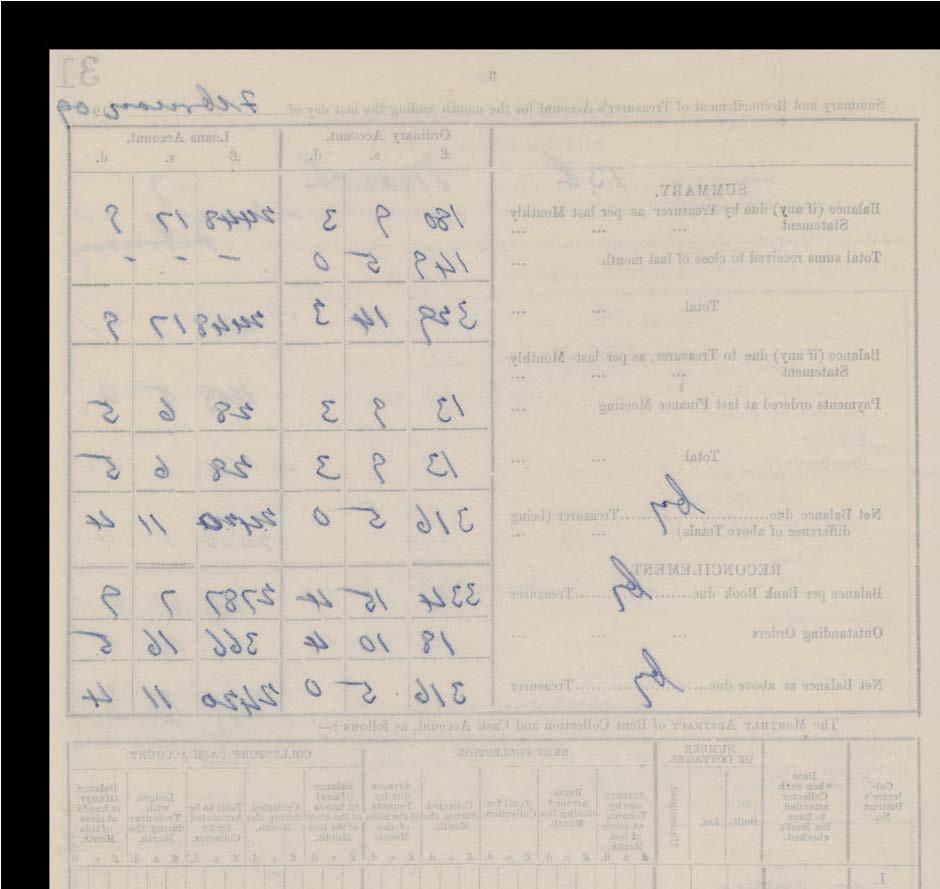 31
3
Summary and Reconcilement of Treasurer's Account for the month ending the last day of February 1909
Ordinary Account. Loans Account.
£ s. d. £ s. d.
SUMMARY.
Balance (if any) due by Treasurer as per last Monthly
Statement ... ... ... 180 9 3 2448 17 9
Total sums received to close of last month ... 149 5 0 - - -
Total ... ... 329 14 3 2448 17 9
Balance (if any) due to Treasurer, as per last Monthly
Statement ... ... ...
Payments ordered at last Finance Meeting ... 13 9 3 28 6 5
Total ... ... 13 9 3 28 6 5
Net Balance due by Treasurer (being
difference of above Totals) ... ... 316 5 0 2420 11 4
RECONCILEMENT
Balance per Bank Book due by Treasurer 334 15 4 2787 7 9
Outstanding Orders ... ... ... 18 10 4 366 16 5
Net Balance as above due by Treasurer 316 5 0 2420 11 4
The MONTHLY ABSTRACT of Rent Collection and Cash Account, as follows :—
NUMBER OF COTTAGES
RENT COLLECTION
COLLECTORS' CASH ACCOUNT
Collector's District No.
Date when each Collector attended to have his Books checked.
Built
Let.
Unoccupied
Rent accrued during the Month.
Total for Collection
Collected during the Month.
Balance (if any) in hands at the last Month.
Collected during the Month.
Total to be Accounted for by Collector.
Lodged with Treasurer during the Month.
Balance (if any) in hands at close of this Month.
£ s. d. £ s. d. £ s. d. £ s. d. £ s. d. £ s. d. £ s. d. £ s. d. £ s. d. £ s. d.
1.